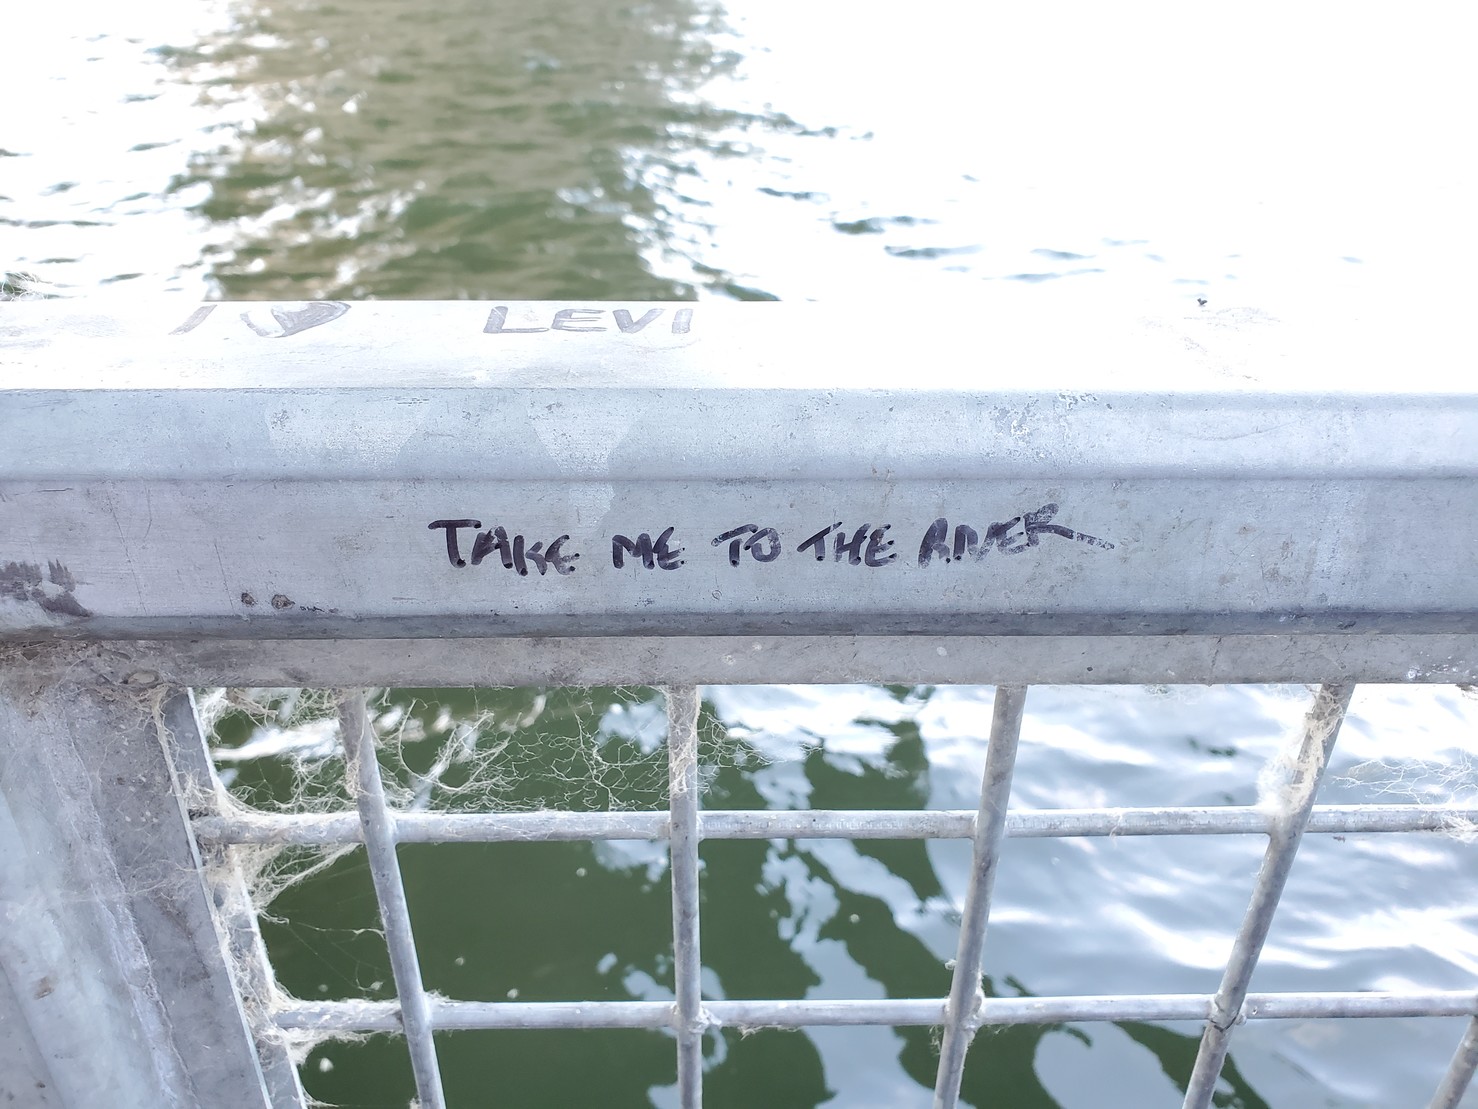 I LEVI
TAKE ME TO THE RIVER